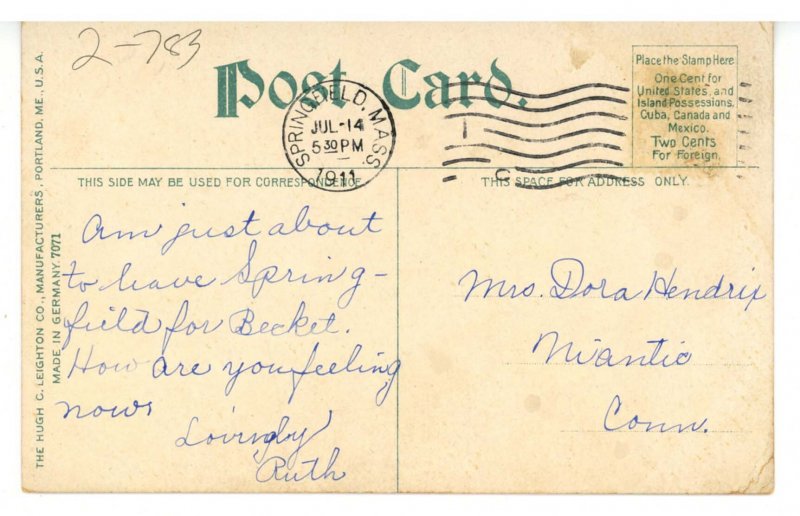 2-783
Post Card.
Place the Stamp Here
One Cent for
United States, and
Island Possessions,
Cuba, Canada and
Mexico.
Two Cents
For Foreign.
SPRINGFIELD, MASS.
JUL-14
5 30 PM
1911
THIS SIDE MAY BE USED FOR CORRESPONDENCE
THIS SPACE FOR ADDRESS ONLY.
Am just about
to leave Spring-
field for Becket.
How are you feeling
now
Lovingly
Ruth
Mrs. Dora Hendrix
Niantic
Conn.
THE HUGH C. LEIGHTON CO., MANUFACTURERS, PORTLAND, ME., U.S.A.
MADE IN GERMANY. 7071